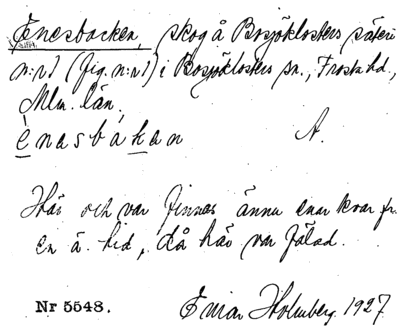 Enesbacken, skog å Bosjöklosters säteri
n:r 1 (fig. n:r 1) i Bosjöklosters sn., Frosta hd.,
Mlm. län,
ènasbàkan A.
Här och var finnas ännu enar kvar fr.
en ä. tid, då här var fälad.
Nr 5548. Einar Holmberg 1927